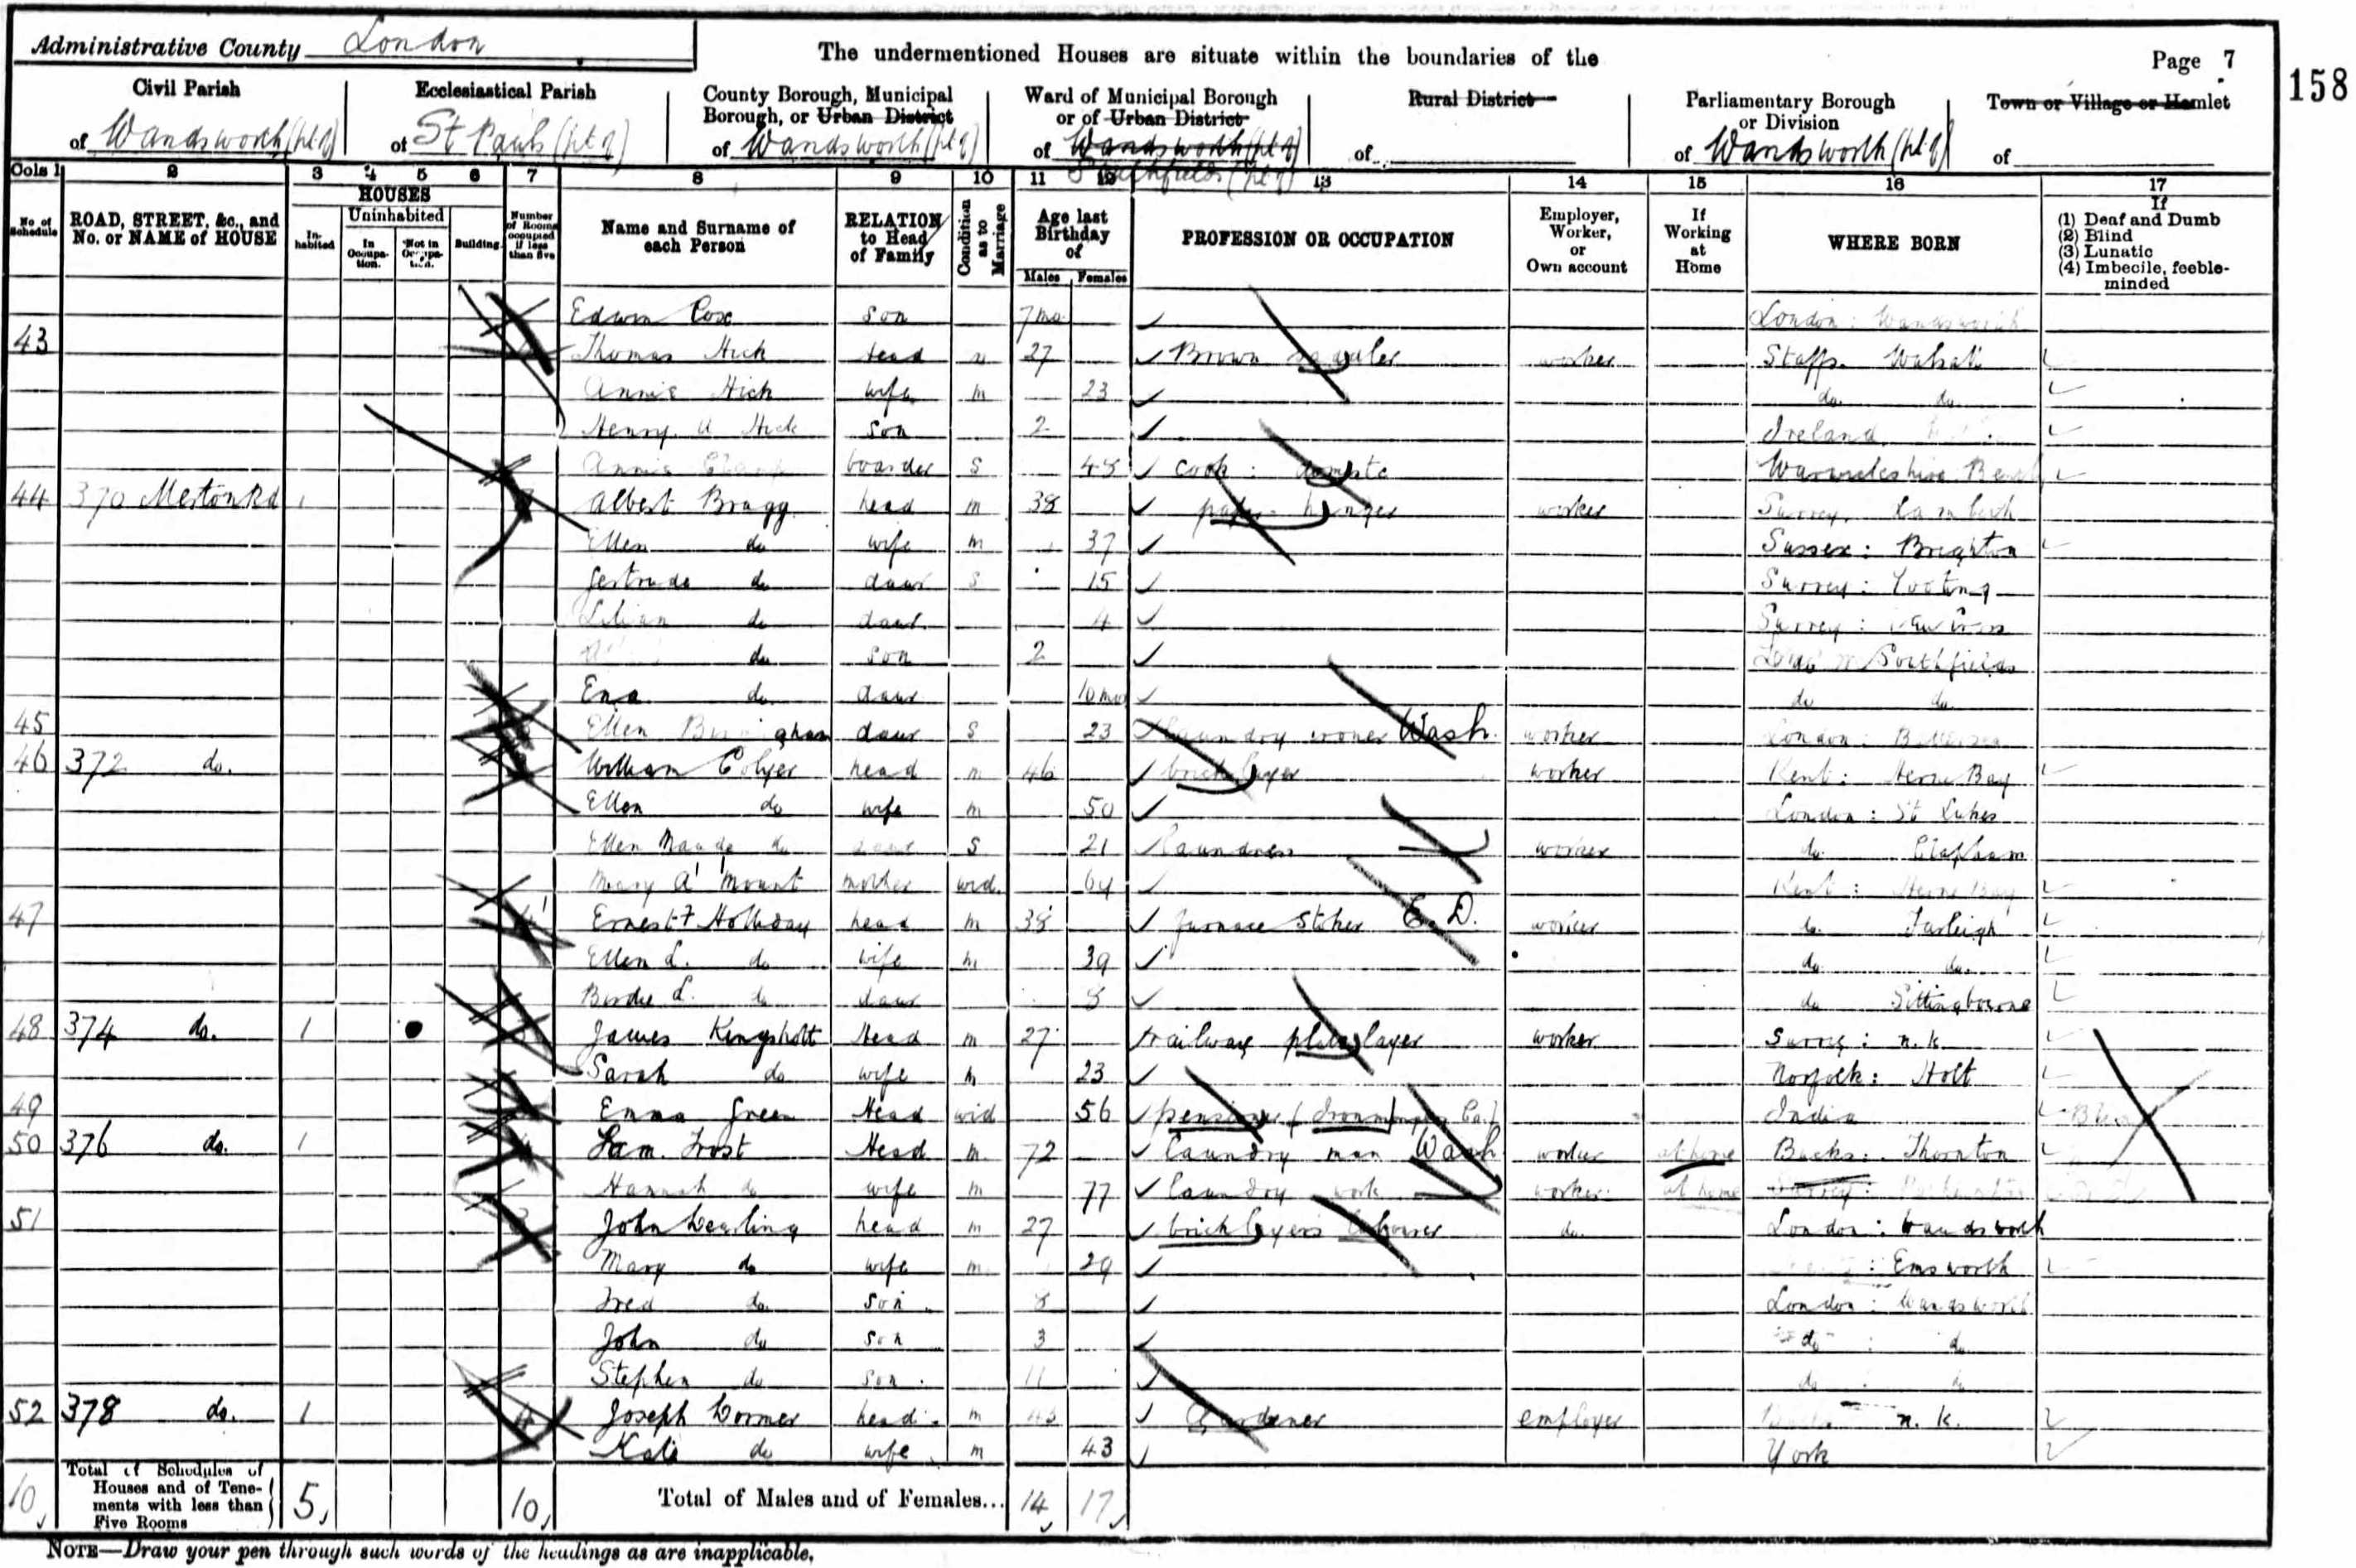 Administrative County London
The undermentioned Houses are situate within the boundaries of the
Page 7
158
Civil Parish
of Wandsworth (pt of)
Ecclesiastical Parish
of St Pauls (pt of)
County Borough, Municipal
Borough, or Urban District
of Wandsworth (pt of)
Ward of Municipal Borough
or of Urban District
of Wandsworth (pt of)
Southfields (pt of)
Rural District
of
Parliamentary Borough
or Division
of Wandsworth (pt of)
Town or Village or Hamlet
of
Cols 1 2 3 4 5 6 7 8 9 10 11 12 13 14 15 16 17
No. of Schedule
ROAD, STREET, &c., and
No. or NAME of HOUSE
HOUSES
Inhabited
Uninhabited
In Occupation.
Not in Occupation.
Building
Number of Rooms occupied if less than five
Name and Surname of
each Person
RELATION
to Head
of Family
Condition as to Marriage
Age last
Birthday
of
Males Females
PROFESSION OR OCCUPATION
Employer,
Worker,
or
Own account
If
Working
at
Home
WHERE BORN
If
(1) Deaf and Dumb
(2) Blind
(3) Lunatic
(4) Imbecile, feeble-
minded
Edwin Cox son 7 mo London: Wandsworth
43 Thomas Hick head 27 Brown worker Staffs. Walsall
Annie Hick wife m 23 do. do.
Henry Hick son 2 Ireland
Annie boarder S 45 cook: domestic Warwickshire
44 370 Merton Rd 1 Albert Bragg head m 38 paper hanger worker Surrey. Lambeth
Ellen do wife m 37 Sussex: Brighton
Gertrude do daur S 15 Surrey: Tooting
Lilian do daur. 4 Surrey: New Cross
do son 2 Southfields
Ena do. daur 10 mos do do
45 Ellen daur S 23 laundry ironer Wash. worker London: Battersea
46 372 do. William Colyer head m 46 bricklayer worker Kent: Herne Bay
Ellen do wife m 50 London: St Lukes
Ellen Maude do daur S 21 laundress worker do. Clapham
Mary A Mount mother wid. 64 Kent: Herne Bay
47 4 Ernest F Holliday head m 38 furnace stoker E. D. worker do. Farleigh
Ellen L. do wife m 39 do do.
Birdie L. do daur 8 do Sittingbourne
48 374 do. 1 James Kingshott Head m 27 railway platelayer worker Surrey: n.k.
Sarah do wife m 23 Norfolk: Holt
49 Emma Green Head wid 56 pensioner (Ironmongers Co.) India
50 376 do. 1 Sam. Frost Head m 72 Laundry man Wash worker at home Bucks: Thornton
Hannah do wife m 77 laundry work worker at home Surrey:
51 3 John head m 27 bricklayers labourer do. London: Wandsworth
Mary do wife m 29 : Emsworth
Fred do. son 8 London: Wandsworth
John do son 3 do do
Stephen do son 11 do do
52 378 do. 1 4 Joseph Cormer head m 43 Gardener employer n. k.
Kate do wife m 43 York
10 Total of Schedules of
Houses and of Tene-
ments with less than
Five Rooms
5 10 Total of Males and of Females... 14 17
NOTE—Draw your pen through such words of the headings as are inapplicable.